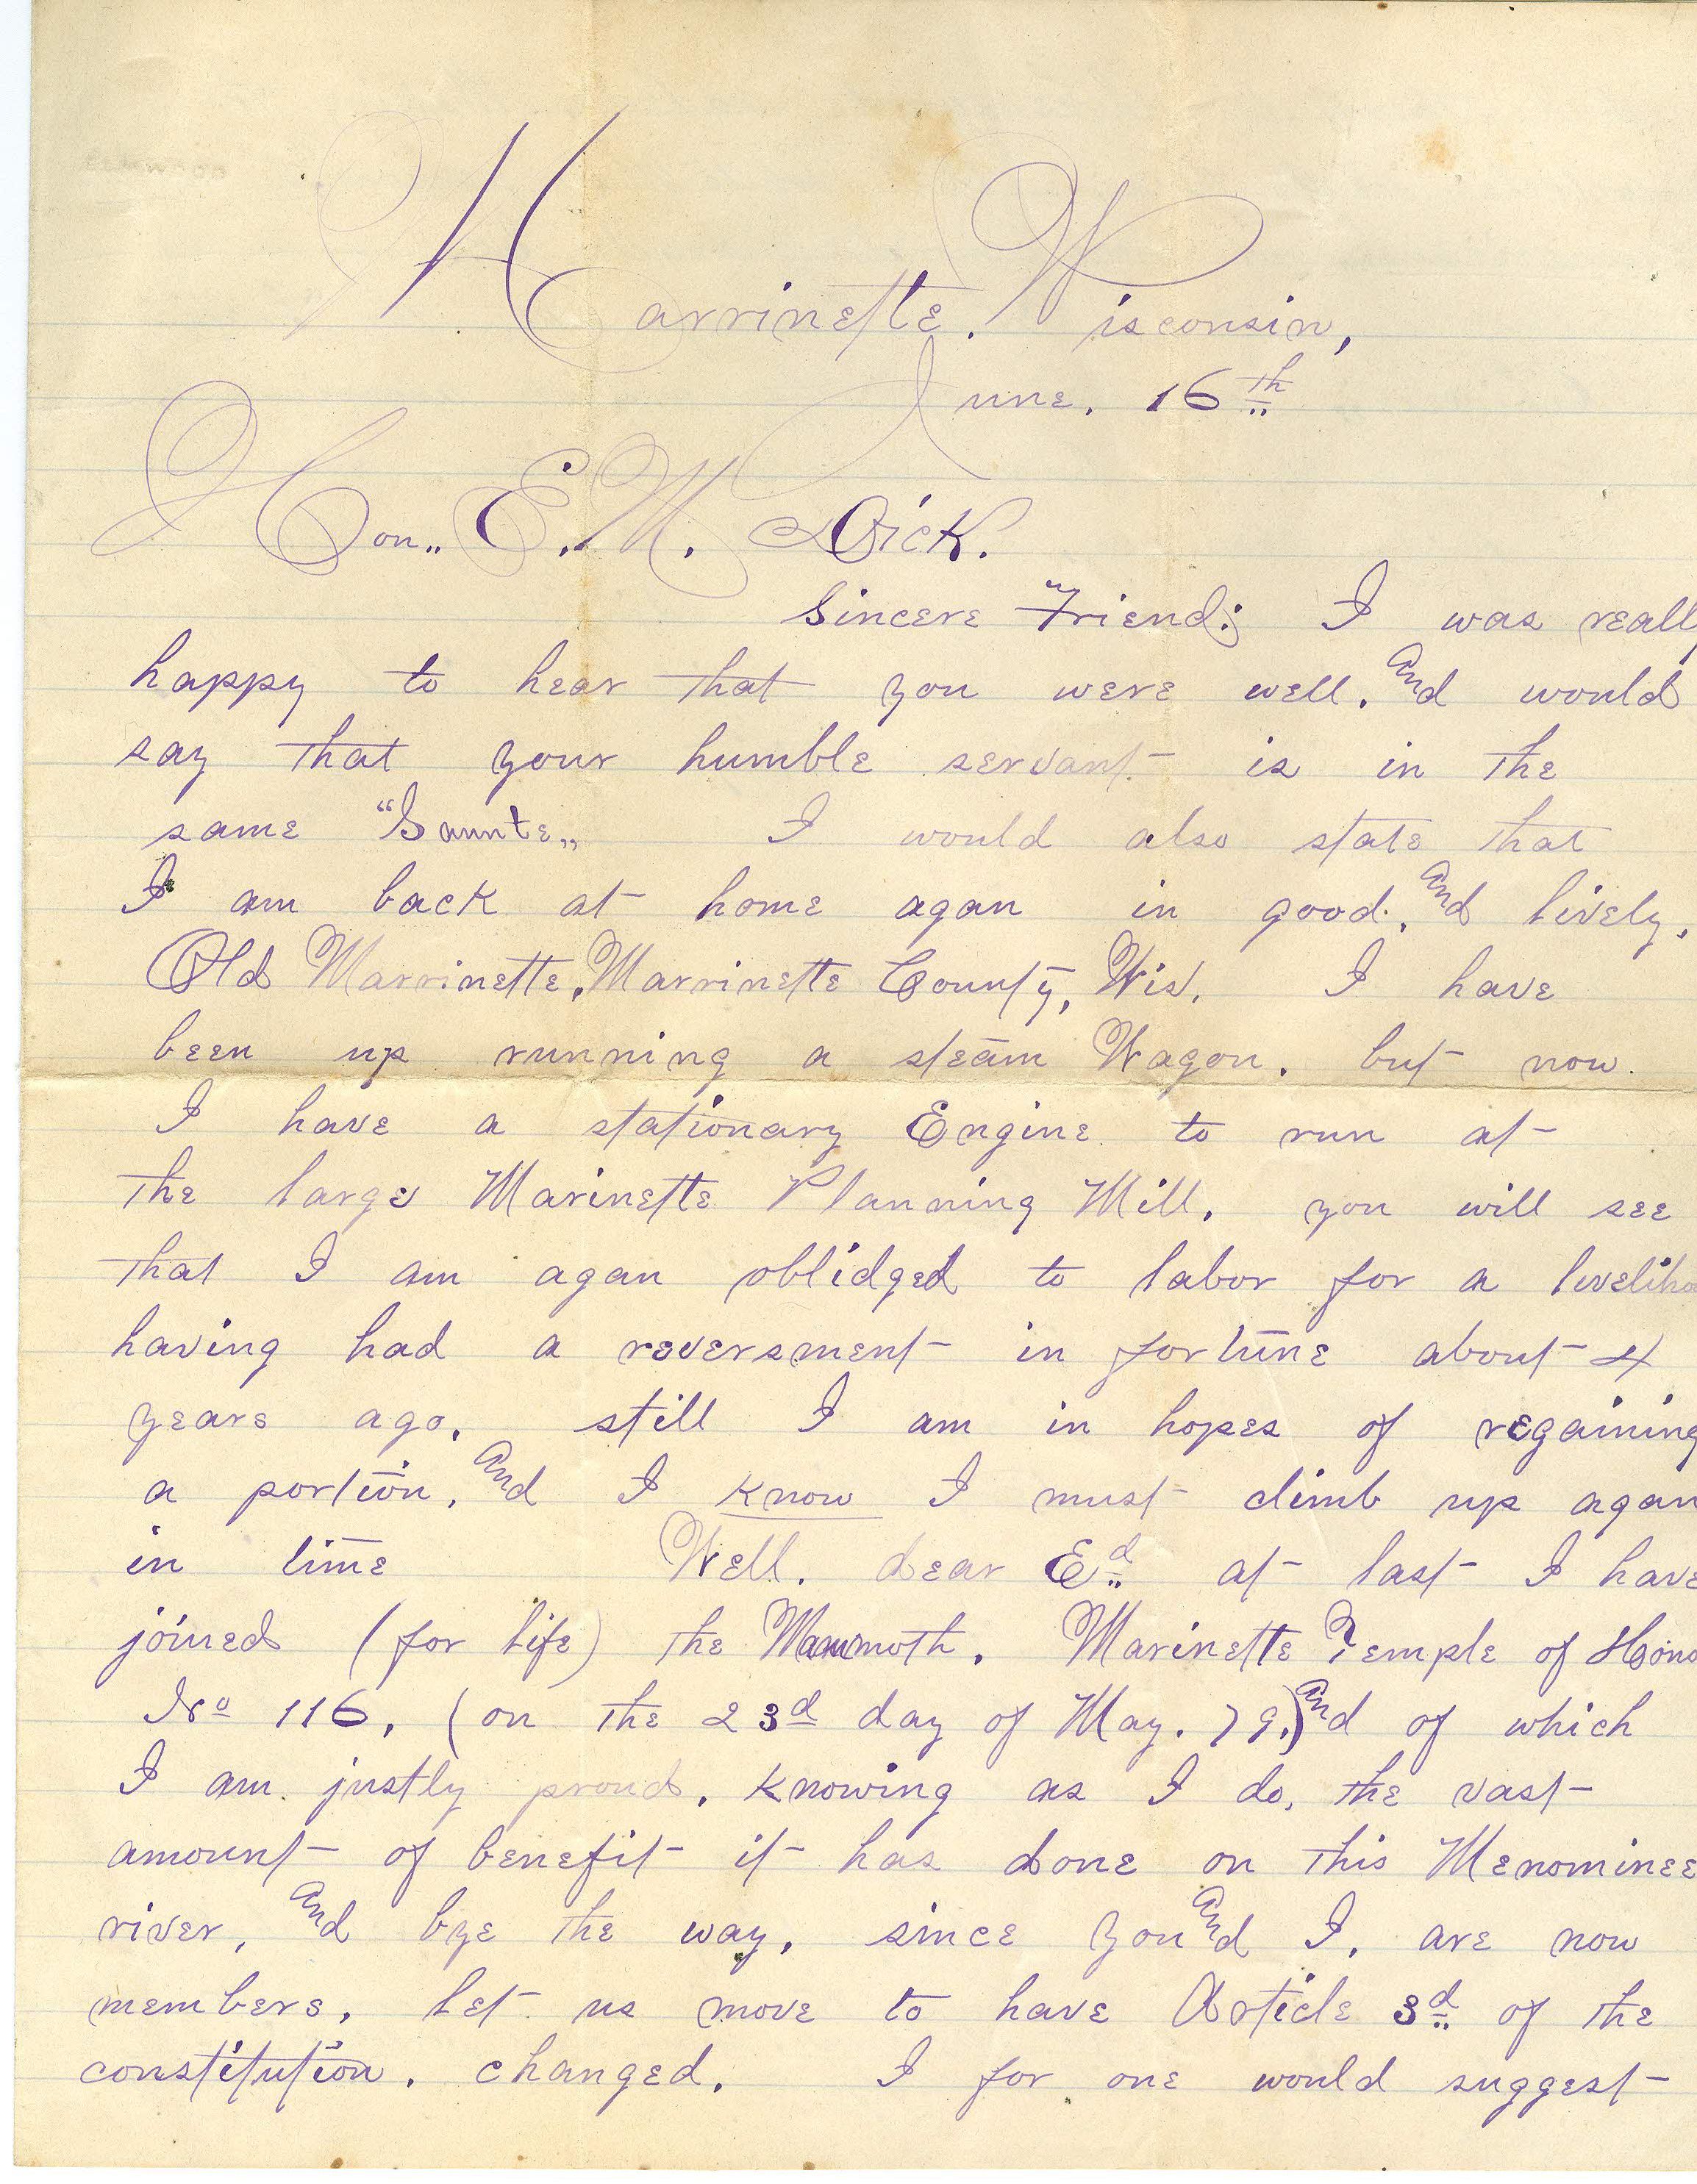 Marrinette. Wisconsin,
June. 16th
Hon,, E. M. Dick.
Sincere Friend; I was really
happy to hear that you were well. And would
say that your humble servant is in the
same "Saunte,,  I would also state that
I am back at home agan in good, And lively,
Old Marrinette, Marrinette County, Wis. I have
been up running a steam Wagon. but now.
I have a stationary Engine to run at
the large Marinette Planning Mill. you will see
that I am agan oblidged to labor for a liveliho
having had a reversment in fortune about 4
years ago. still I am in hopes of regaining
a portion. And I know I must climb up agan
in time Well. dear Ed at last I have
joined (for life) the Mammoth. Marinette Temple of Hono
No 116. (on the 23d day of May. 79.) And of which
I am justly proud. knowing as I do, the vast
amount of benefit it has done on this Menominee
river, And bye the way, since you And I, are now
members. let us move to have Article 3d of the
constitution. changed. I for one would suggest